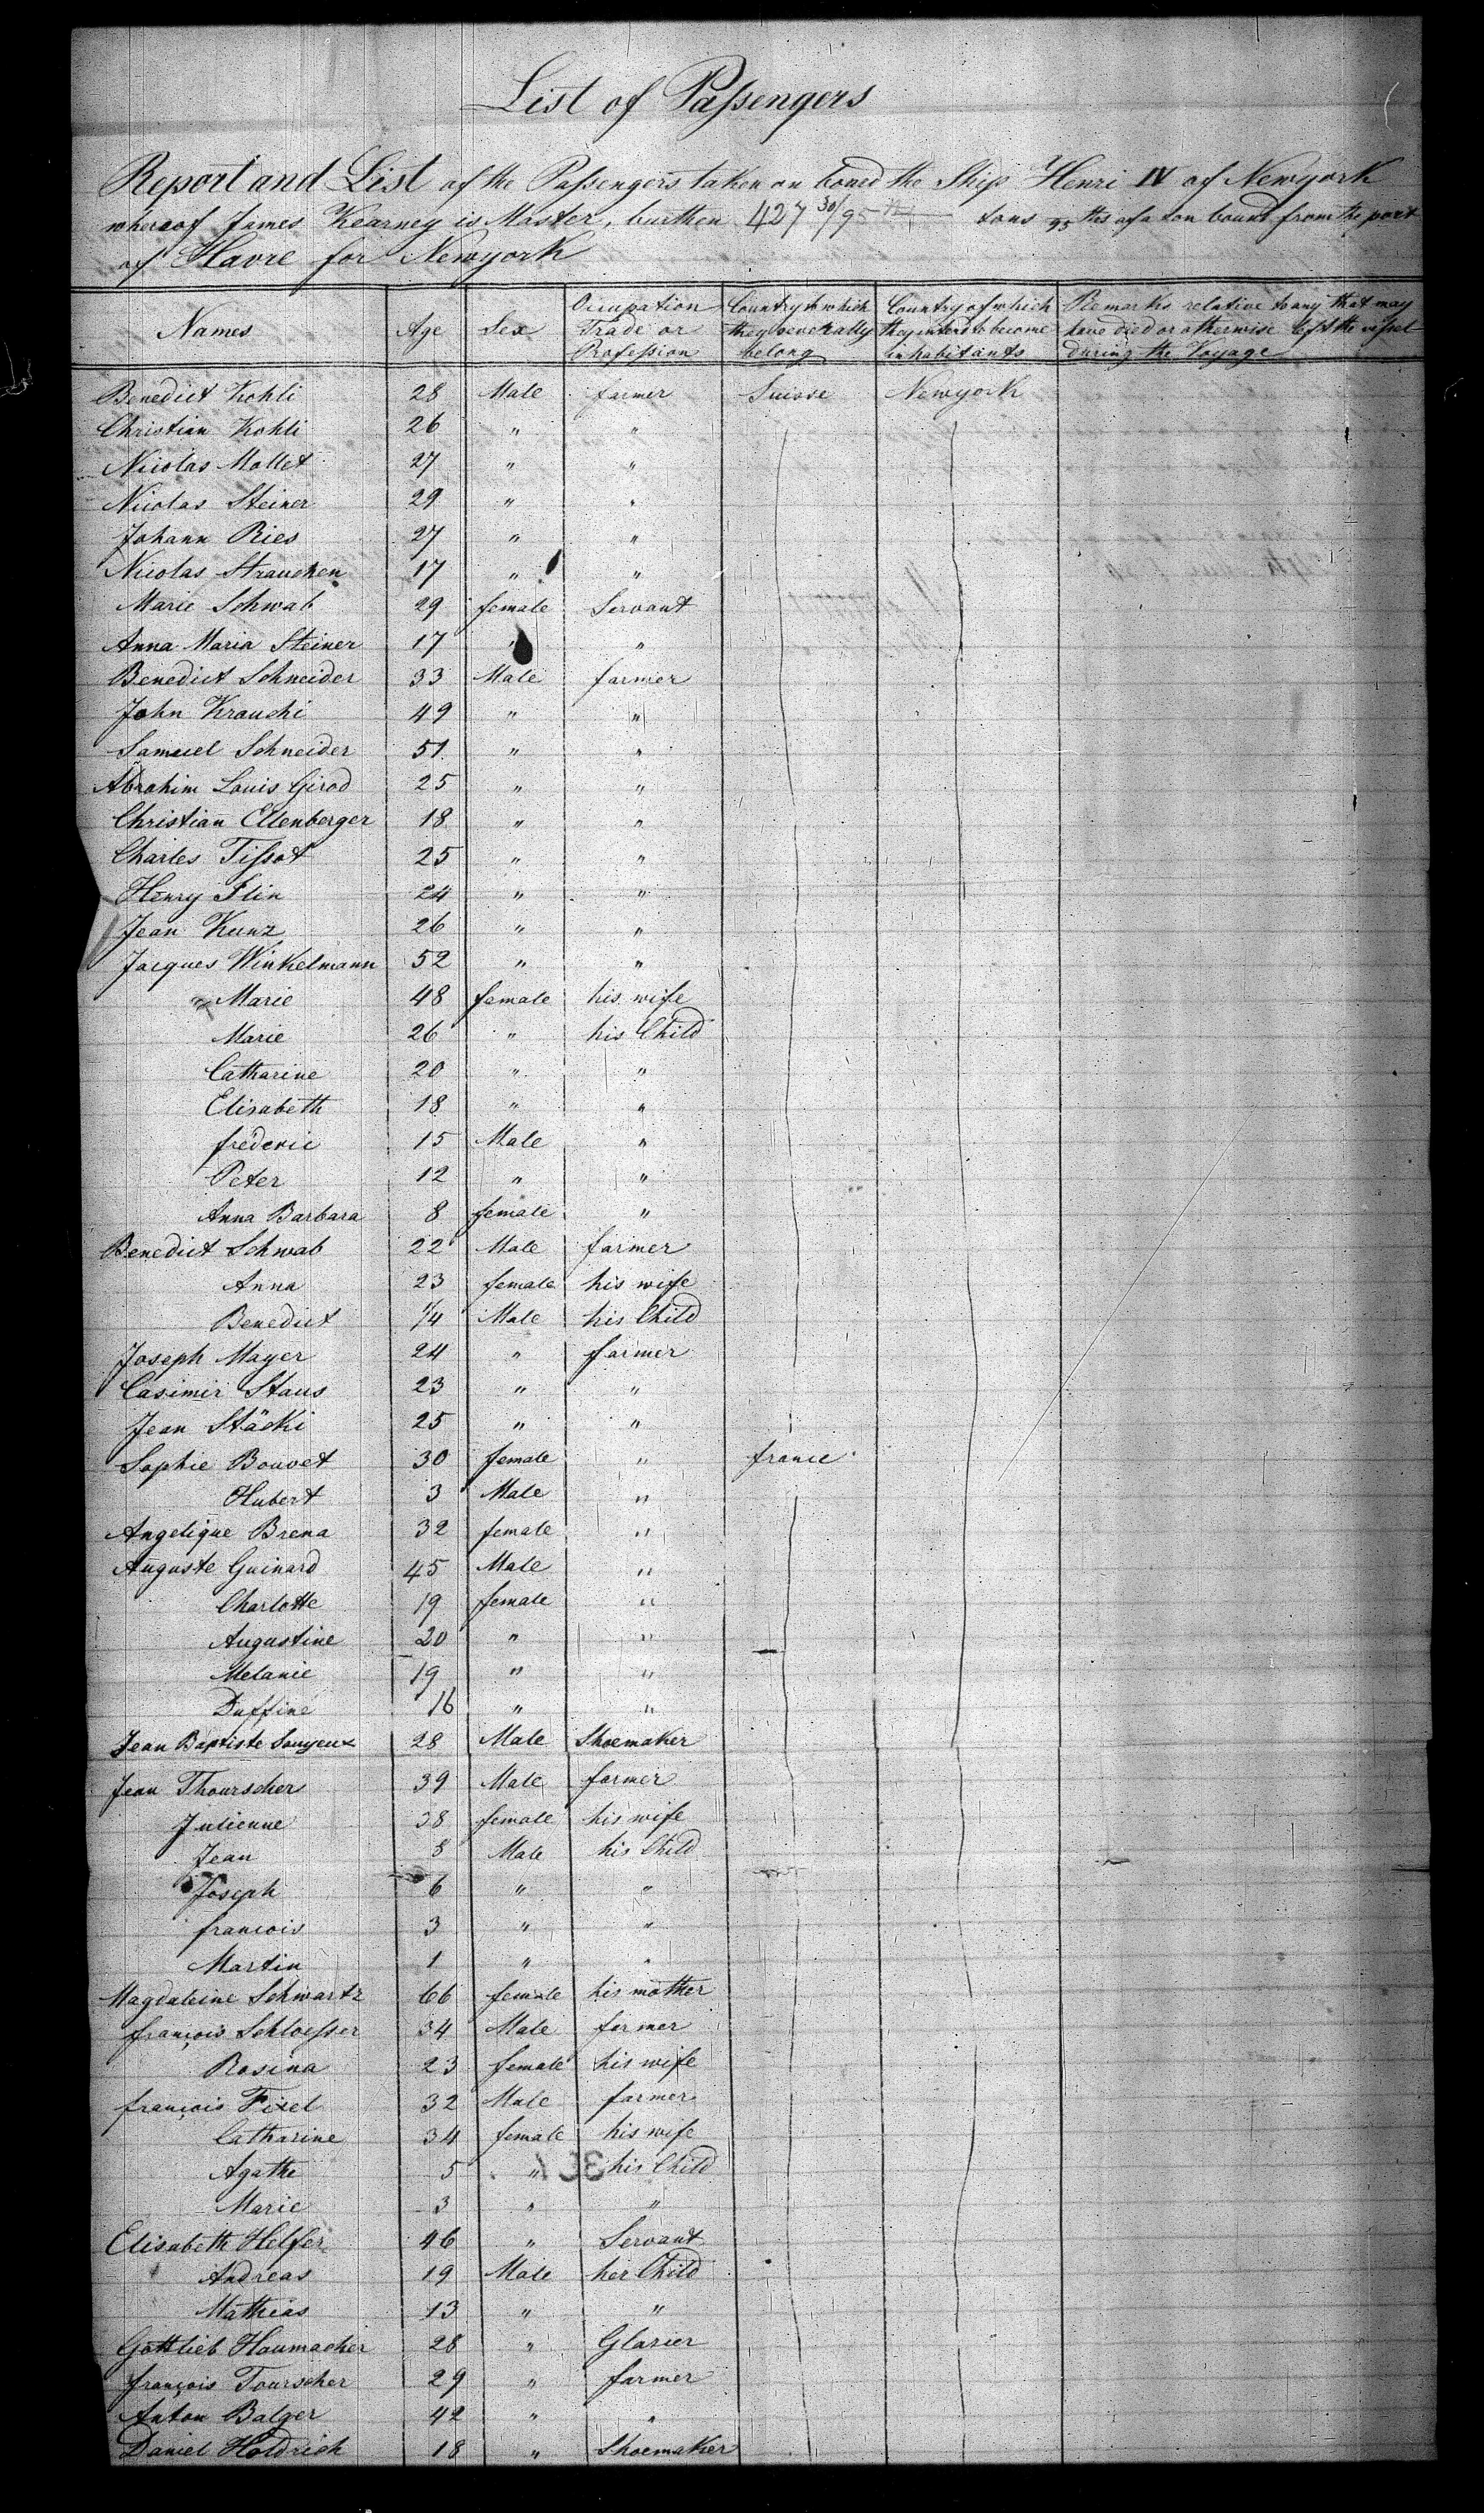 List of Passengers
Report and List of the Passengers taken on board the Ship Henri IV of Newyork
whereof James Kearney is Master, burthen 427 30/95 tons 95 ths of a ton bound from the port
of Havre for Newyork
Names Age Sex Occupation Trade or Profession Country to which they severally belong Country of which they intend to become inhabitants Remarks relative to any that may have died or otherwise left the vessel during the Voyage
Benedict Kohli 28 Male farmer Suisse Newyork
Christian Kohli 26 " "
Nicolas Mollet 27 " "
Nicolas Steiner 29 " "
Johann Ries 27 " "
Nicolas Strauchen 17 " "
Marie Schwab 29 female Servant
Anna Maria Steiner 17 " "
Benedict Schneider 33 Male farmer
John Krauchi 49 " "
Samuel Schneider 51 " "
Abrahim Louis Girod 25 " "
Christian Ellenberger 18 " "
Charles Tissot 25 " "
Henry Flin 24 " "
Jean Kunz 26 " "
Jacques Winkelmann 52 " "
" Marie 48 female his wife
Marie 26 " his Child
Catharine 20 " "
Elisabeth 18 " "
fréderic 15 Male "
Peter 12 " "
Anna Barbara 8 female "
Benedict Schwab 22 Male farmer
Anna 23 female his wife
Benedict 1/4 Male his Child
Joseph Mayer 24 " farmer
Casimir Staus 23 " "
Jean Stäcki 25 " "
Sophie Bouvet 30 female " france
Hubert 3 Male "
Angelique Brena 32 female "
Auguste Guinard 45 Male "
Charlotte 19 female "
Augustine 20 " "
Melanie 19 " "
Duffine 16 " "
Jean Baptiste Souyeux 28 Male Shoemaker
Jean Thourscher 39 Male farmer
Julienne 38 female his wife
Jean 8 Male his Child
Joseph 6 " "
francois 3 " "
Martin 1 " "
Magdaleine Schwartz 66 female his mother
françois Schloesser 34 Male farmer
Rosina 23 female his wife
françois Fixel 32 Male farmer
Catharine 34 female his wife
Agathe 5 " his Child
Marie 3 " "
Elisabeth Helfer 46 " Servant
Andreas 19 Male her Child
Mathias 13 " "
Gottlieb Haumacher 28 " Glazier
françois Tourscher 29 " farmer
Anton Balger 42 " "
Daniel Holdrich 18 " Shoemaker